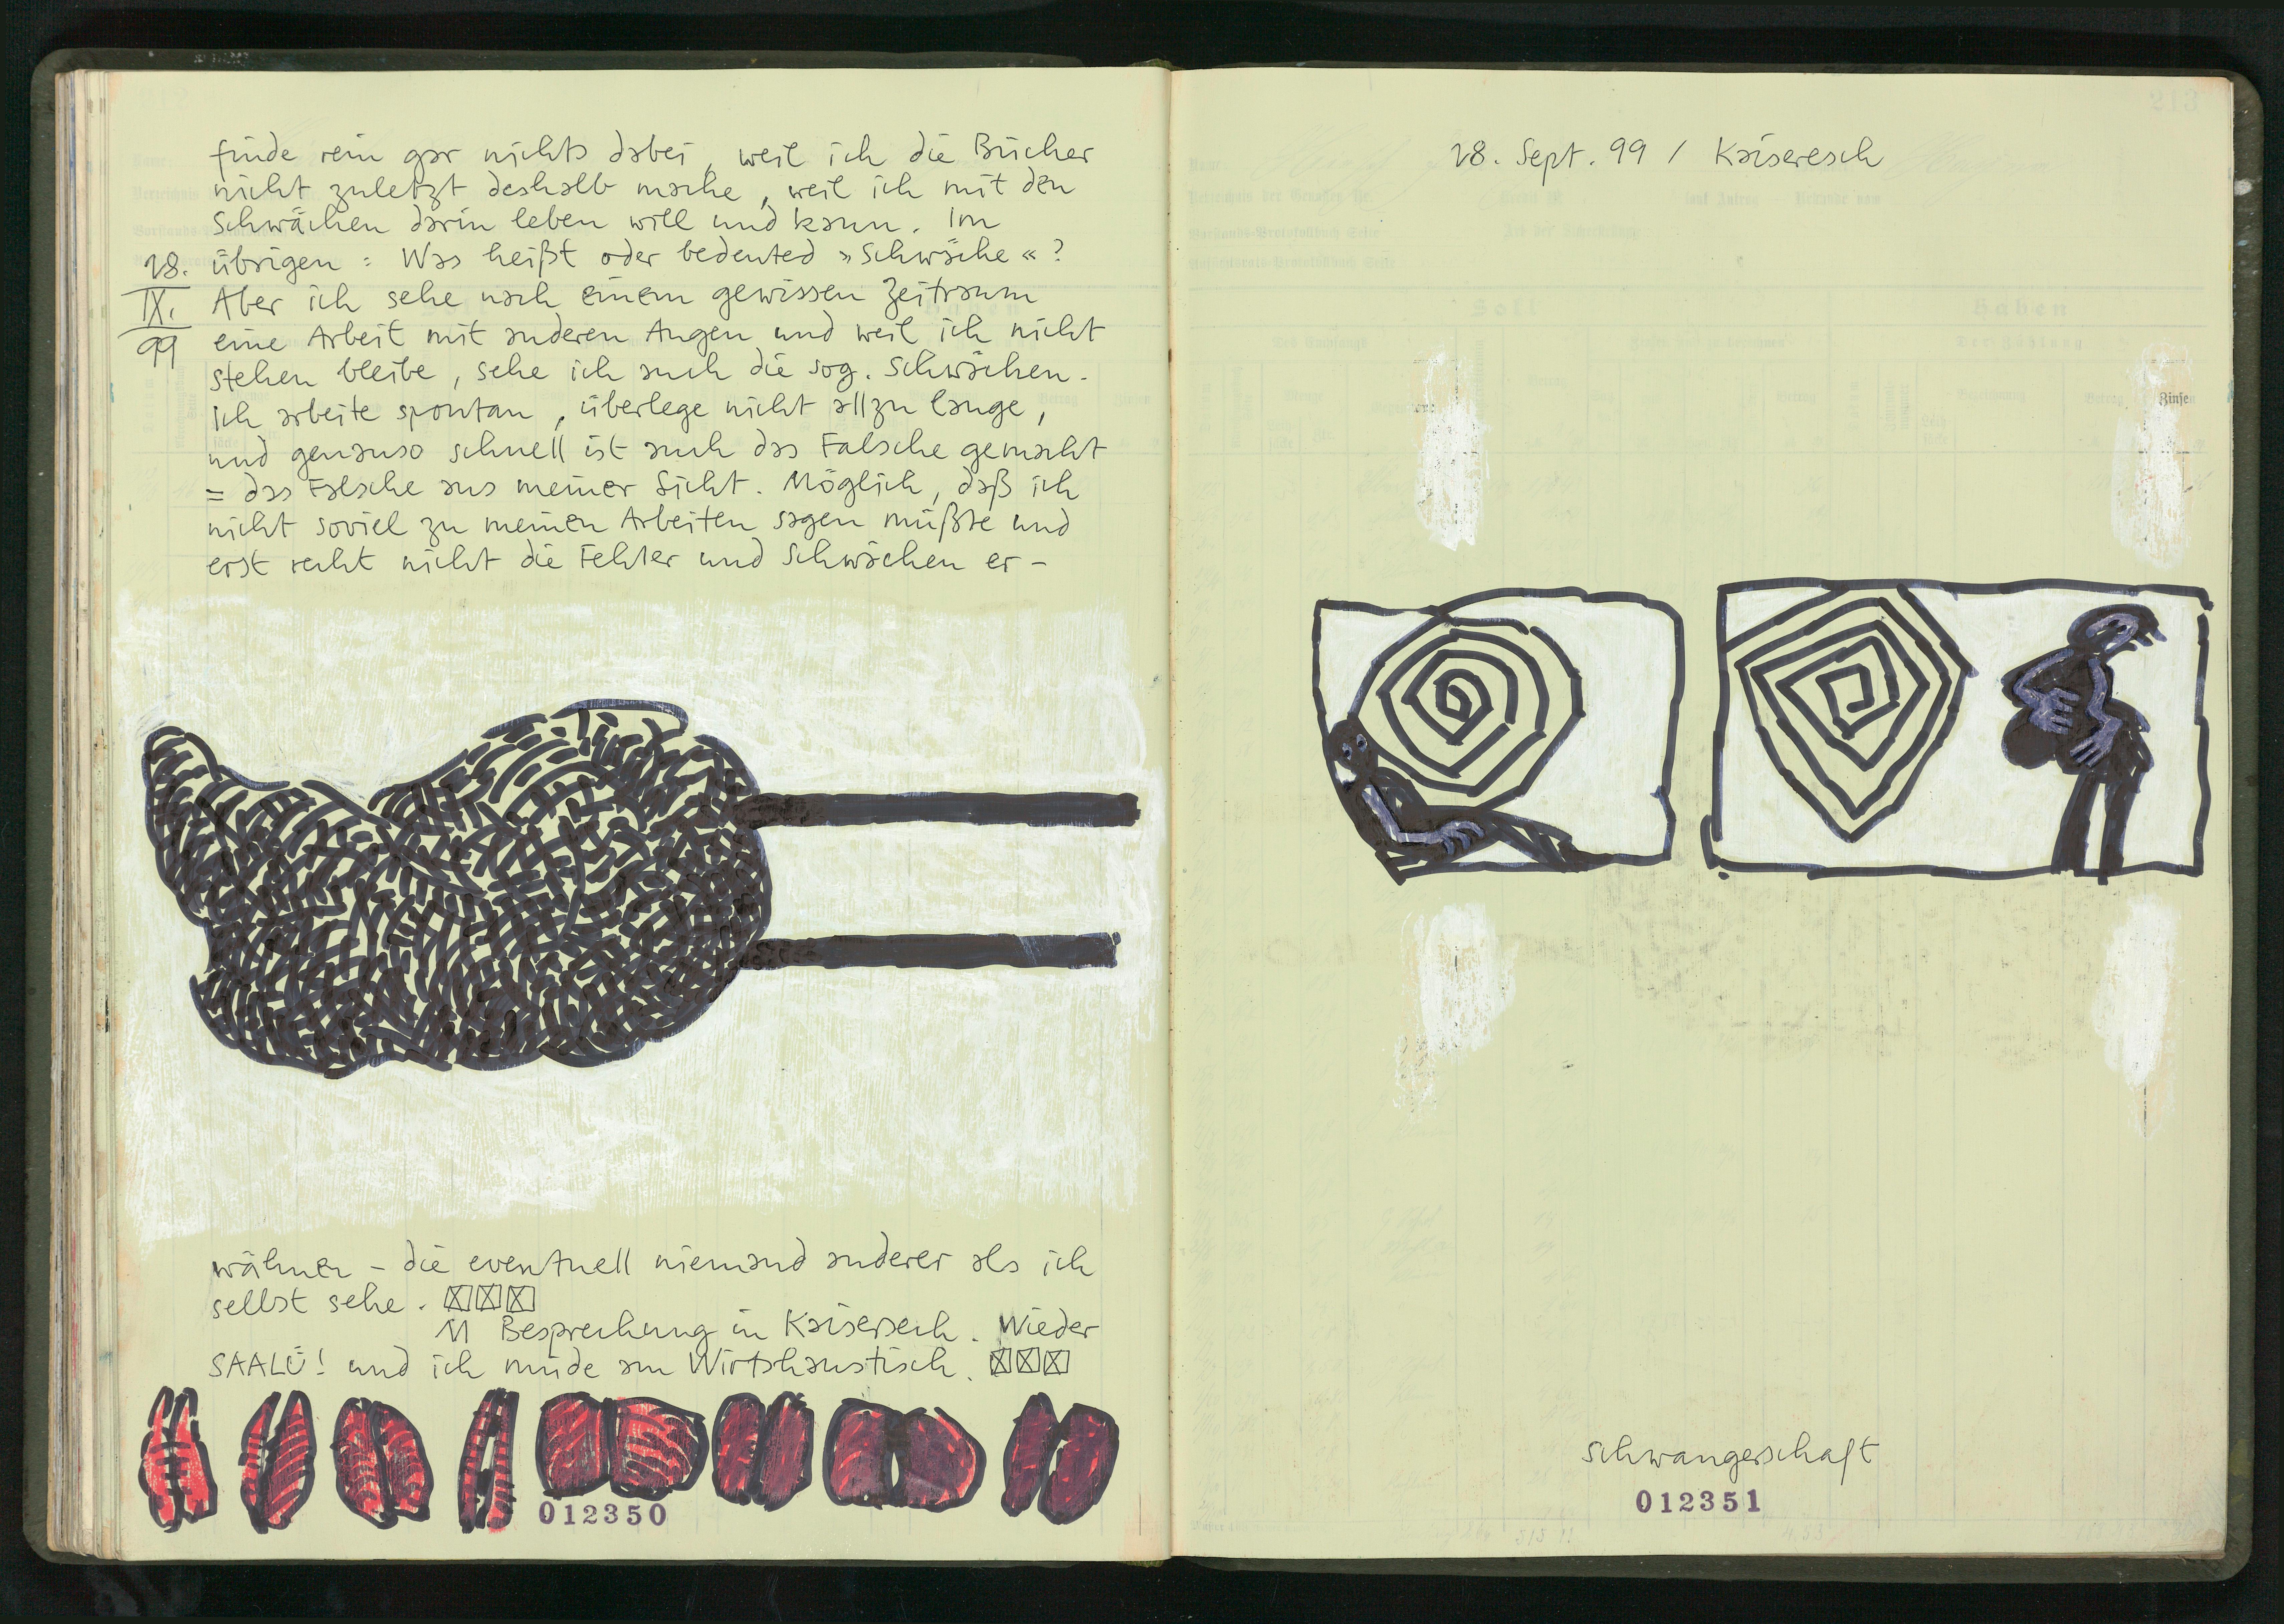 finde rein gar nichts dabei, weil ich die Bücher
nicht zuletzt deshalb mache, weil ich mit den
Schwächen darin leben will und kann. Im
übrigen : Was heißt oder bedeuted »Schwäche«?
28.
IX.
99
Aber ich sehe nach einem gewissen Zeitraum
eine Arbeit mit anderen Augen und weil ich nicht
stehen bleibe, sehe ich auch die sog. Schwächen.
Ich arbeite spontan, überlege nicht allzu lange,
und genauso schnell ist auch das Falsche gemacht
= das Falsche aus meiner Sicht. Möglich, daß ich
nicht soviel zu meinen Arbeiten sagen müßte und
erst recht nicht die Fehler und Schwächen er-
wähnen – die eventuell niemand anderer als ich
selbst sehe.
11 Besprechung in Kaisersech. Wieder
SAALÜ! und ich müde am Wirtshaustisch.
012350
28. Sept. 99 / Kaiseresch
213
Soll
Haben
Zinsen
Schwangerschaft
012351